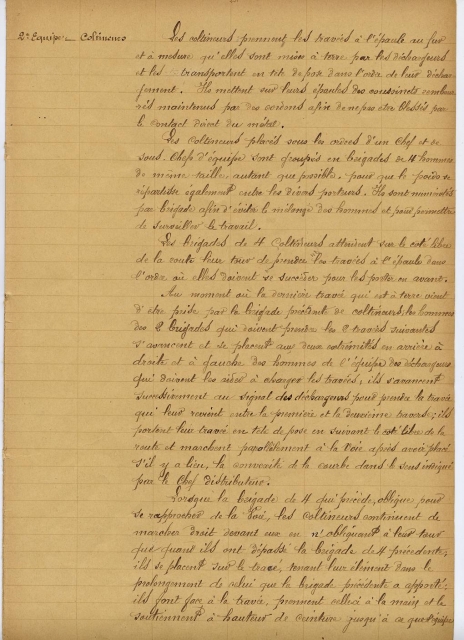 2e Equipe - Coltineurs
Les coltineurs prennent les travées à l'épaule au fur
et à mesure qu'elles sont mises à terre par les déchargeurs
et les transportent en tête de pose dans l'ordre de leur déchar-
gement. Ils mettent sur leurs épaules des coussinets
maintenus par des cordons afin de ne pas être blessés par
le contact direct du métal.
Les Coltineurs placés sous les ordres d'un Chef et de
sous-Chefs d'équipe sont groupés en brigades de 4 hommes
de même taille, autant que possible, pour que le poids se
répartisse également entre les divers porteurs. Ils sont numérotés
par brigade afin d'éviter le mélange des hommes et pour permettre
de surveiller le travail.
Les brigades de 4 Coltineurs attendent sur le côté libre
de la route leur tour de prendre les travées à l'épaule dans
l'ordre où elles doivent se succéder pour les porter en avant.
Au moment où la dernière travée qui est à terre vient
d'être prise par la brigade précédente de coltineurs, les hommes
des 2 brigades qui doivent prendre les 2 travées suivantes
s'avancent et se placent aux deux extrémités en arrière à
droite et à gauche des hommes de l'équipe des déchargeurs
qui doivent les aider à charger les travées; ils s'avancent
successivement au signal des déchargeurs pour prendre la travée
qui leur revient entre la première et la deuxième traverse; ils
portent leur travée en tête de pose en suivant le côté libre de la
route et marchent parallèlement à la Voie après avoir placé
s'il y a lieu, la convexité de la courbe dans le sens indiqué
par le Chef distributeur.
Lorsque la brigade de 4 qui précède, oblique pour
se rapprocher de la Voie, les coltineurs continuent de
marcher droit devant eux en n'obliquant à leur tour
que quand ils ont dépassé la brigade de 4 précédente;
ils se placent sur le tracé, tenant leur élément dans le
prolongement de celui que la brigade précédente a apporté;
ils font face à la travée, prennent celle-ci à la main et la
soutiennent à hauteur de ceinture jusqu'à ce que l'équipe